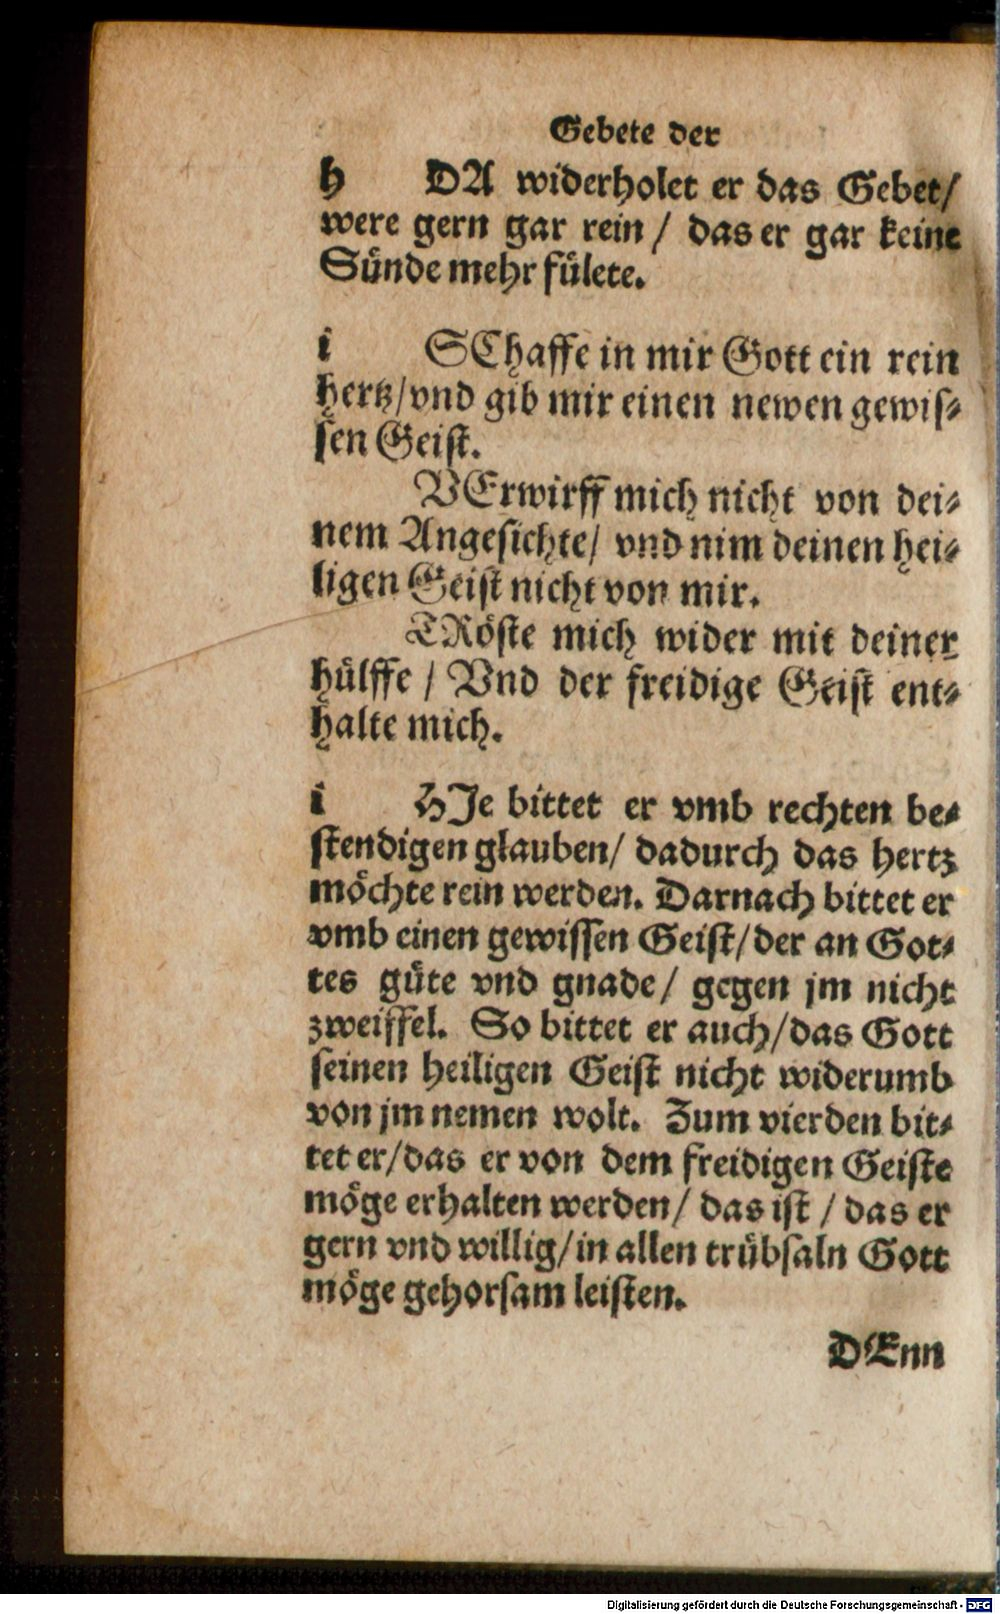 Gebete der
h DA widerholet er das Gebet/
were gern gar rein / das er gar keine
Sünde mehr fülete.
i SChaffe in mir Gott ein rein
hertz/vnd gib mir einen newen gewis⸗
sen Geist.
VErwirff mich nicht von dei⸗
nem Angesichte/ vnd nim deinen hei⸗
ligen Geist nicht von mir.
TRöste mich wider mit deiner
hülffe / Vnd der freidige Geist ent⸗
halte mich.
i HJe bittet er vmb rechten be⸗
stendigen glauben/ dadurch das hertz
möchte rein werden. Darnach bittet er
vmb einen gewissen Geist/der an Got⸗
tes güte vnd gnade/ gegen jm nicht
zweiffel. So bittet er auch/das Gott
seinen heiligen Geist nicht widerumb
von jm nemen wolt. Zum vierden bit⸗
tet er/das er von dem freidigen Geiste
möge erhalten werden/ das ist / das er
gern vnd willig/in allen trübsaln Gott
möge gehorsam leisten.
DEnn
Digitalisierung gefördert durch die Deutsche Forschungsgemeinschaft - DFG